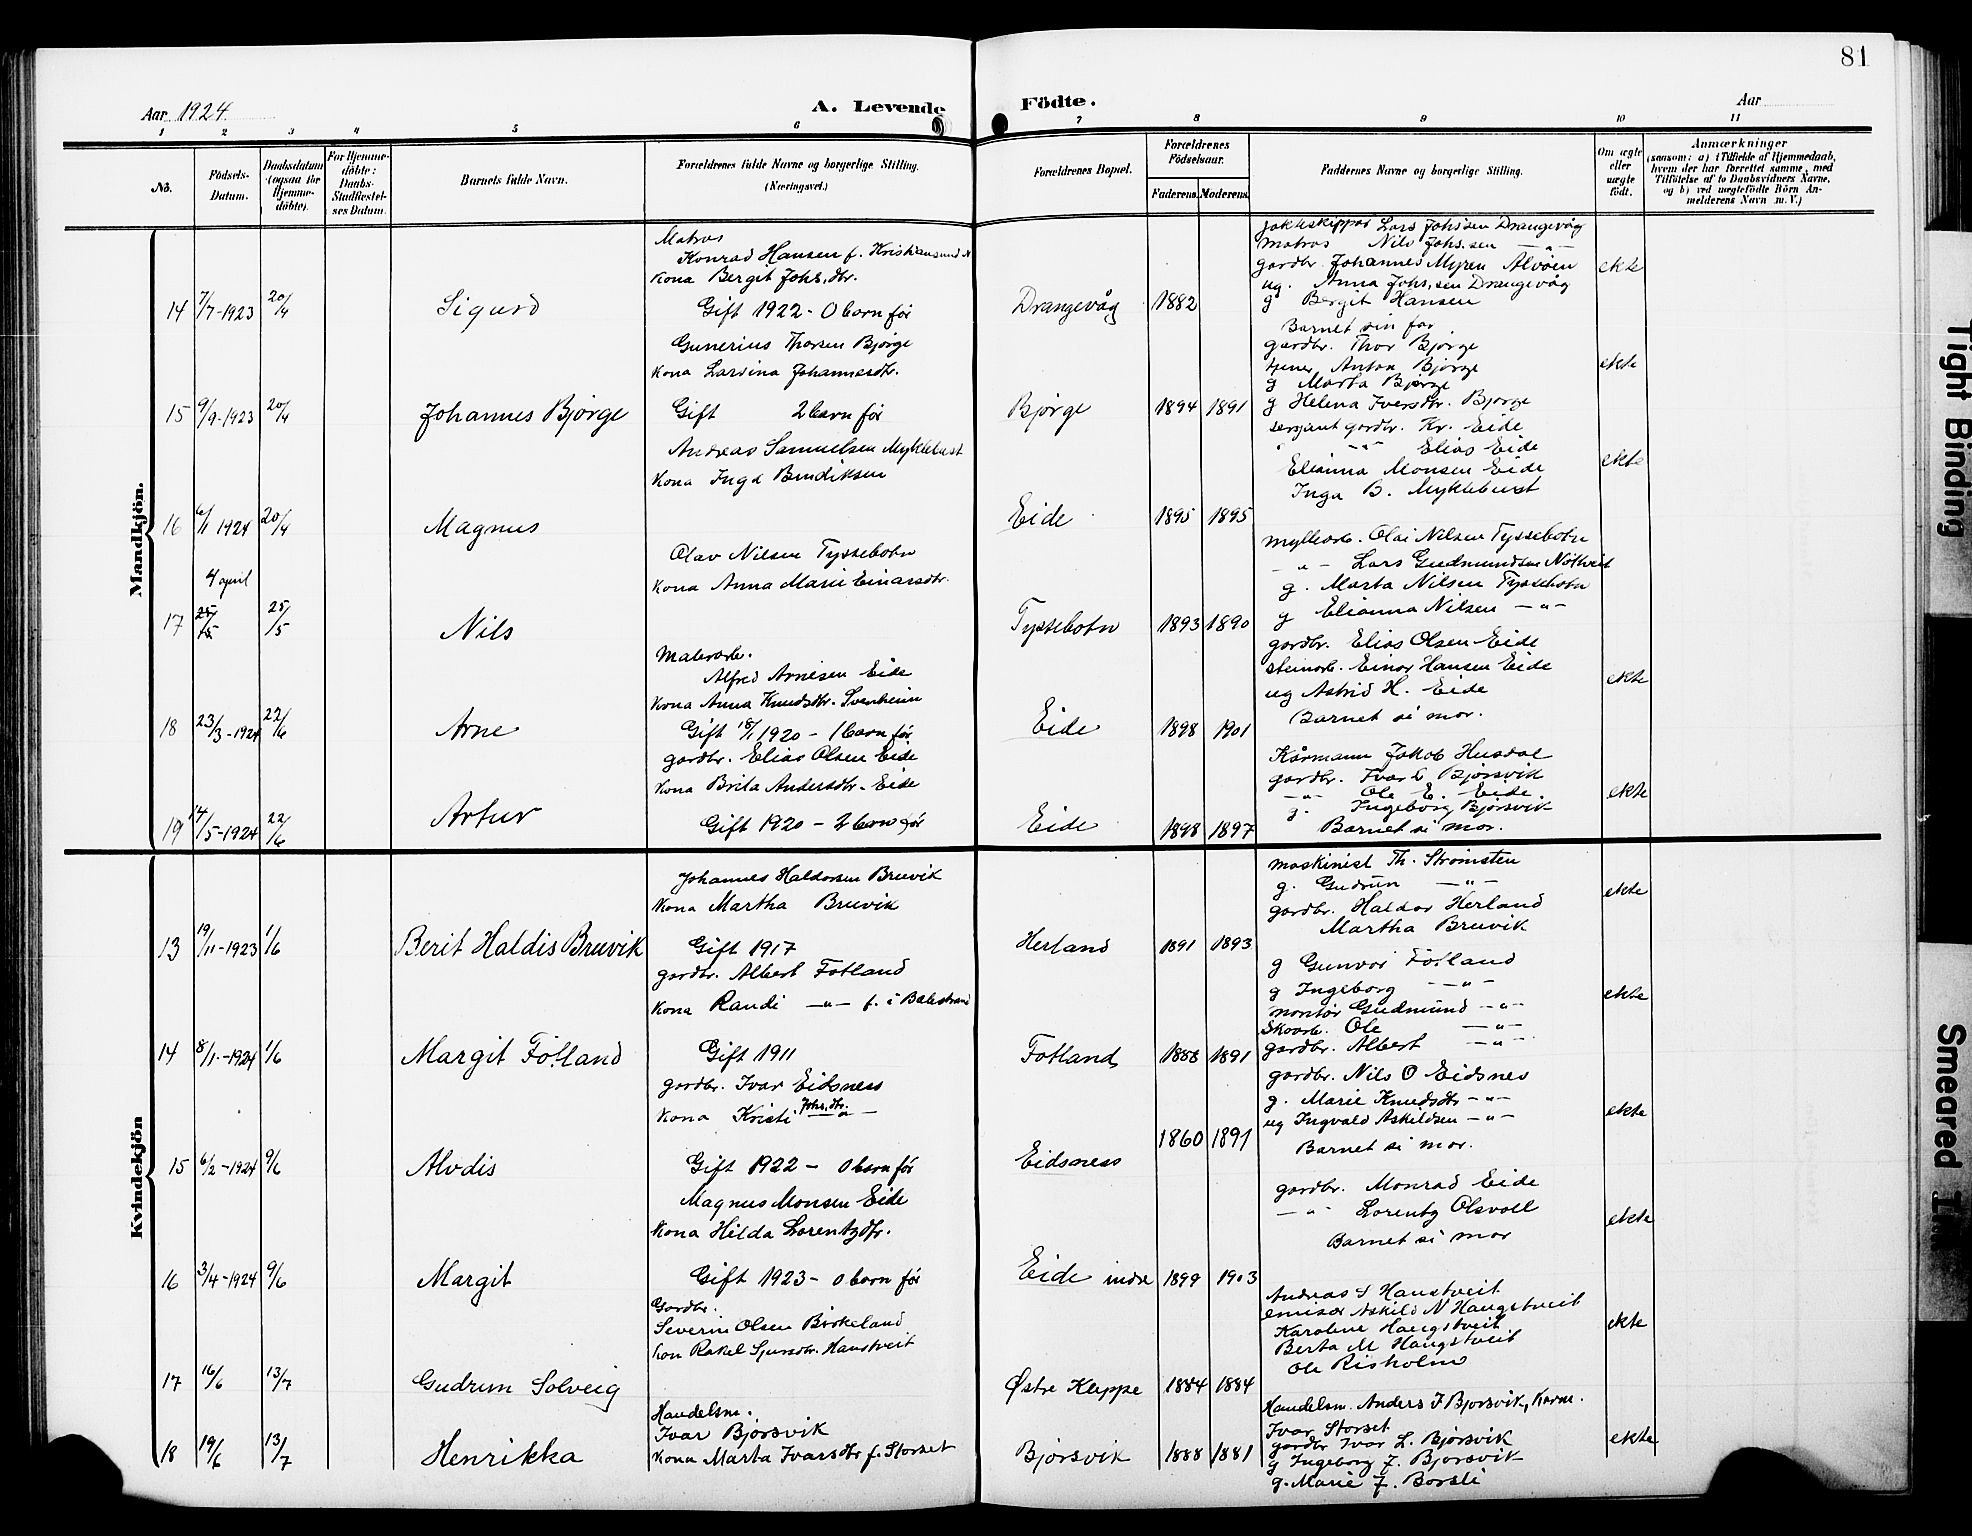 81
Aar 1924
A. Levende Födte.
Aar
1 2 3 4 5 6 7 8 9 10 11
No.
Födsels-Datum.
Daabsdatum (ogsaa for Hjemme-döbte).
For Hjemme-döbte: Daabs-Stadfæstel-ses Datum.
Barnets fulde Navn.
Forældrenes fulde Navne og borgerlige Stilling. (Næringsvei.)
Forældrenes Bopæl.
Forældrenes Födselsaar.
Faderens. Moderens.
Faddernes Navne og borgerlige Stilling.
Om ægte eller uægte födt.
Anmærkninger
(saasom: a) i Tilfælde af Hjemmedaab, hvem der har forrettet samme, med Tilföielse af to Daabsvidners Navne, og b) ved uægtefödte Börn An-melderens Navn m. V.)
Mandkjön.
14 7/7-1923 20/4 Sigurd
Matros
Konrad Hansen f. Kristiansund N
Kona Bergit Johs.dtr.
Gift 1922 - 0 barn før
Drangevåg 1882
jaktskipper Lars Johs'sen Drangevåg
matros Nils Johs.sen -"-
gardbr. Johannes Myren Alvøen
ug. Anna Johs.sen Drangevåg
g Bergit Hansen
Barnet sin far
ekte
15 9/9-1923 20/4 Johannes Bjørge
Gunerius Thorsen Bjørge
Kona Larsina Johannesdtr.
Gift 2 barn før
Bjørge 1894 1891
gardbr. Thor Bjørge
tjener Anton Bjørge
g Marta Bjørge
g Helena Iversdtr. Bjørge
ekte
16 6/1 1924 20/4 Magnus
Andreas Samuelsen Myklebust
Kona Inga Bendiksen
Eide 1895 1895
sersjant gardbr. Kr. Eide
" -"- Elias Eide
Elianna Monsen Eide
Inga B. Myklebust
ekte
17 4 april 25/5 25/5 Nils
Olav Nilsen Tyssebotn
Kona Anna Marie Einarsdtr.
Tyssebotn 1893 1890
myllearb. Olai Nilsen Tyssebotn
-"- Lars Gudmundsen Notveit
g. Marta Nilsen Tyssebotn
g Elianna Nilsen -"-
18 23/3-1924 22/6 Arne
Malerarb.
Alfred Arnesen Eide
Kona Anna Knudsdtr. Svenheim
Gift 18/1 1920 - 1 barn før
Eide 1898 1901
gardbr. Elias Olsen Eide
steinarb. Einar Hansen Eide
ug Astrid H. Eide
Barnet si mor.
ekte
19 14/5-1924 22/6 Artur
gardbr. Elias Olsen Eide
Kona Brita Andersdtr. Eide
Gift 1920 - 2 barn før
Eide 1898 1897
Kårmann Jakob Husdal
gardbr. Ivar L Bjørsvik
-"- Ole E. Eide.
g. Ingeborg Bjørsvik
Barnet si mor.
ekte
Kvindekjön
13 19/11-1923 1/6 Berit Haldis Bruvik
Johannes Haldorsen Bruvik
Kona Martha Bruvik
Gift 1917
Herland 1891 1893
maskinist Th. Strømsten
g. Gudrun -"-
gardbr. Haldor Herland
Martha Bruvik
ekte
14 8/1-1924 1/6 Margit Fotland
gardbr. Albert Fotland
Kona Randi -"- f. i Balestrand
Gift 1911
Fotland 1888 1891
g Gunvor Fotland
g Ingeborg -"-
montør Gudmund -"-
Skoarb. Ole -"-
gardbr. Albert -"-
ekte
15 6/2-1924 9/6 Alvdis
gardbr. Ivar Eidsness
Kona Kristi Johs.dtr. -"-
Gift 1922 - 0 barn før
Eidsness 1860 1891
gardbr. Nils O Eidsnes
g. Marie Knudsdtr -"-
ug Ingvald Askildsen -"-
Barnet si mor.
ekte
16 3/4-1924 9/6 Margit
Magnus Monsen Eide
Kona Hilda Lorentzdtr.
Gift 1923 - 0 barn før
Eide indre 1899 1903
gardbr. Monrad Eide
-"- Lorentz Olsvoll
Barnet si mor
ekte
17 16/6 13/7 Gudrun Solveig
Gardbr.
Severin Olsen Birkeland
Kon Rakel Sjursdtr. Haustveit
Østre Kleppe 1884 1884
Andreas S Haustveit
emisær Askild N Haugstveit
Karoline Haugstveit
Berta M Haugstveit
Ole Risholm
ekte
18 19/6 13/7 Henrikka
Handelsm.
Ivar Bjørsvik
Kona Marta Ivarsdtr f. Storset
Bjørsvik 1888 1881
Handelsm. Anders I Bjørsvik, Kårm.
Ivar Storset
gardbr Ivar L. Bjørsvik
g Ingeborg J. Bjørsvik
g. Marie J. Borsli
ekte
Tight Binding
Smeared Ink